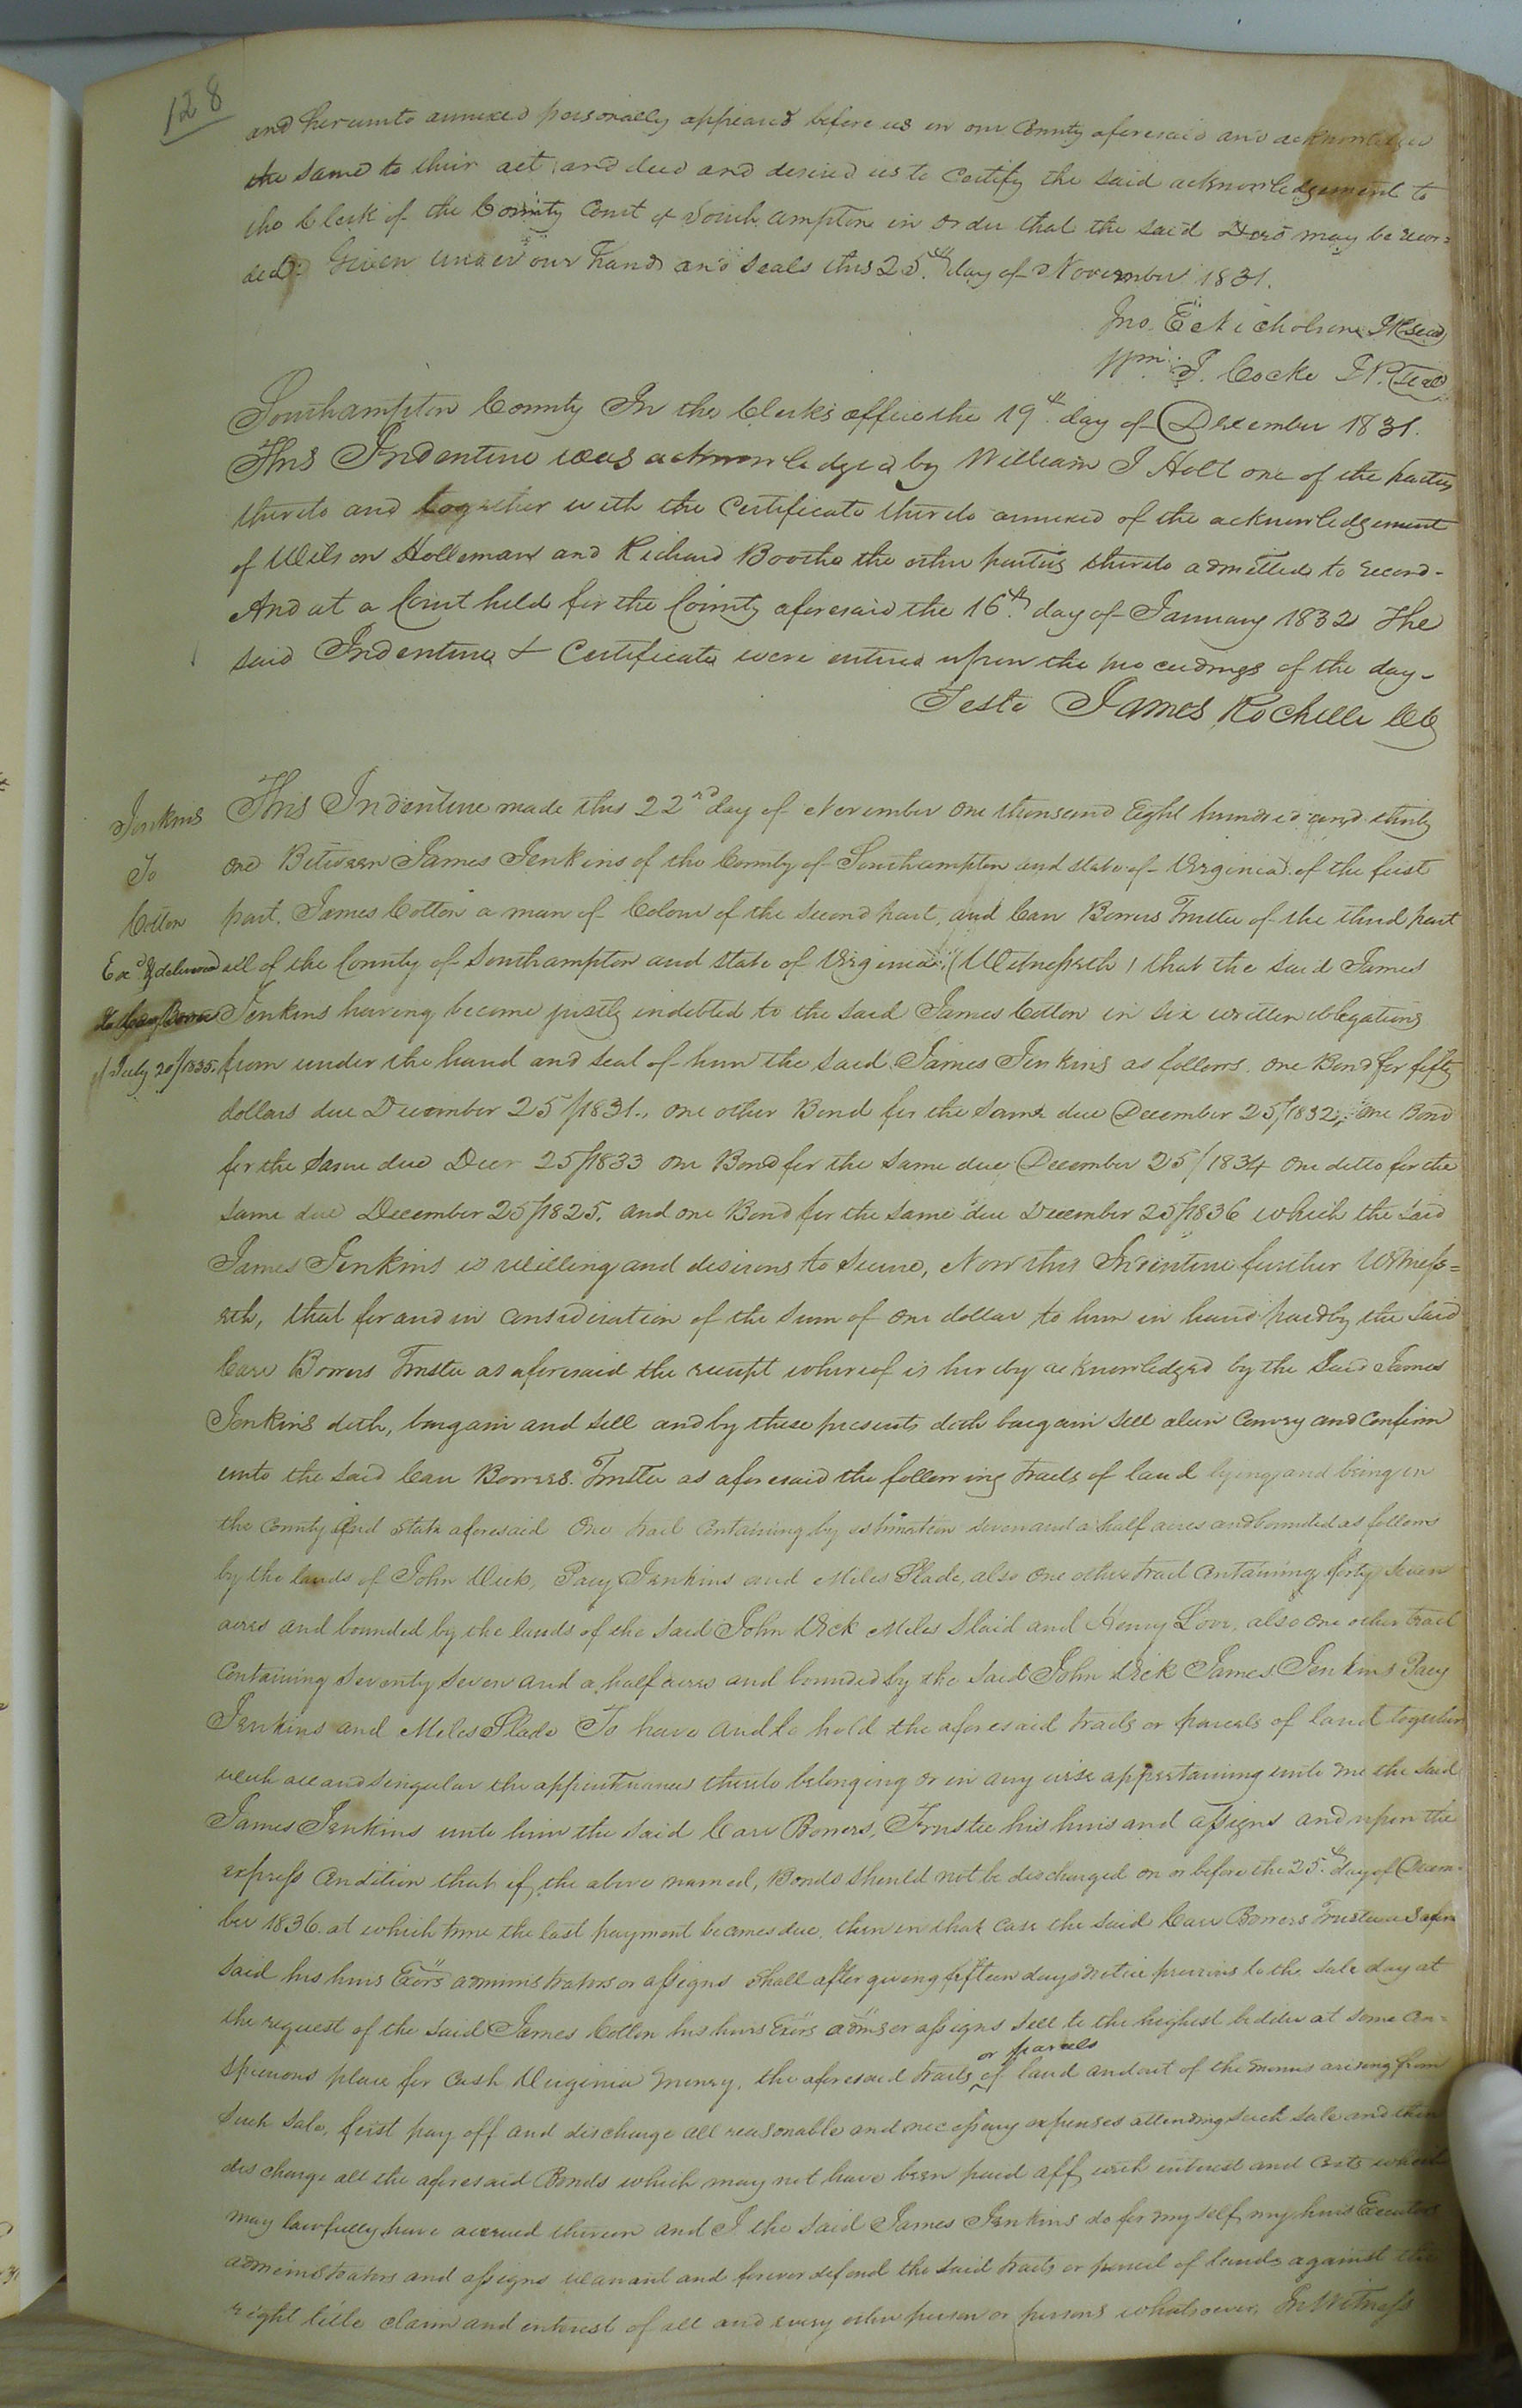 128
and hereunto annexed personally appeared before us in our County aforesaid and acknowledged
the same to their act and deed and desired us to certify the said acknowledgement to
the Clerk of the County Court of Southampton in order that the said Deed may be recor=
ded. Given under our hands and seals this 25th day of November 1831.
Jno. E Nicholson JP seal
Wm. J. Cocke J.P. seal
Southampton County In the Clerk's office the 19th day of December 1831.
This Indenture was acknowledged by William J Holt one of the parties
thereto and together with the Certificate thereto annexed of the acknowledgement
of Wilson Holleman and Richard Boothe the other parties thereto admitted to record-
And at a Court held for the County aforesaid the 16th day of January 1832 The
said Indenture & Certificate were entered upon the proceedings of the day-
Teste James Rochelle CC
Jenkins
To
Cotton
Exd & delivered
July 20/1835
This Indenture made this 22nd day of November one thousand Eight hundred and thirty
one Between James Jenkins of the County of Southampton and state of Virginia of the first
part. James Cotton a man of Colour of the second part, and Carr Bowers Trustee of the third part
all of the County of Southampton and state of Virginia (Witnesseth) that the said James
Jenkins having become justly indebted to the said James Cotton in six written obligations
from under the hand and seal of him the said James Jenkins as follows. one Bond for fifty
dollars due December 25/1831., one other Bond for the same due December 25/1832, one Bond
for the same due Decr 25/1833 one Bond for the same due December 25/1834 one ditto for the
same due December 25/1825. and one Bond for the same due December 25/1836 which the said
James Jenkins is willing and desirous to secure, Now this Indenture further Witness=
eth, that for and in consideration of the sum of one dollar to him in hand paid by the said
Carr Bowers Trustee as aforesaid the receipt whereof is hereby acknowledged by the said James
Jenkins doth, bargain and sell and by these presents doth bargain sell alien convey and confirm
unto the said Carr Bowers. Trustee as aforesaid the following tracts of land lying and being in
the County and state aforesaid One tract containing by estimation seven and a half acres and bounded as follows
by the lands of John Vick, Pacy Jenkins and Miles Slade, also one other tract containing forty seven
acres and bounded by the lands of the said John Vick Miles Slaid and Henry Love, also one other tract
containing seventy seven and a half acres and bounded by the said John Vick James Jenkins Pacy
Jenkins and Miles Slade To have and to hold the aforesaid tracts or parcels of land together
with all and singular the appurtenances thereto belonging or in any wise appertaining unto me the said
James Jenkins unto him the said Carr Bowers, Trustee his heirs and assigns and upon the
express condition that if the above named, Bonds should not be discharged on or before the 25th day of Decem=
ber 1836. at which time the last payment becomes due. then in that case the said Carr Bowers Trustee as afore
said his heirs Exors administrators or assigns shall after giving fifteen days notice previous to the sale day at
the request of the said James Cotton his heirs Exors adms or assigns sell to the highest bidder at some con=
spicuous place for cash Virginia money, the aforesaid tracts or parcels of land and out of the monies arising from
such sale, first pay off and discharge all reasonable and necessary expenses attending such sale and then
discharge all the aforesaid Bonds which may not have been paid off with interest and costs which
may lawfully have accrued thereon and I the said James Jenkins do for myself my heirs Executors
administrators and assigns warrant and forever defend the said tracts or parcel of lands against the
right title claim and interest of all and every other person or persons whatsoever, In Witness